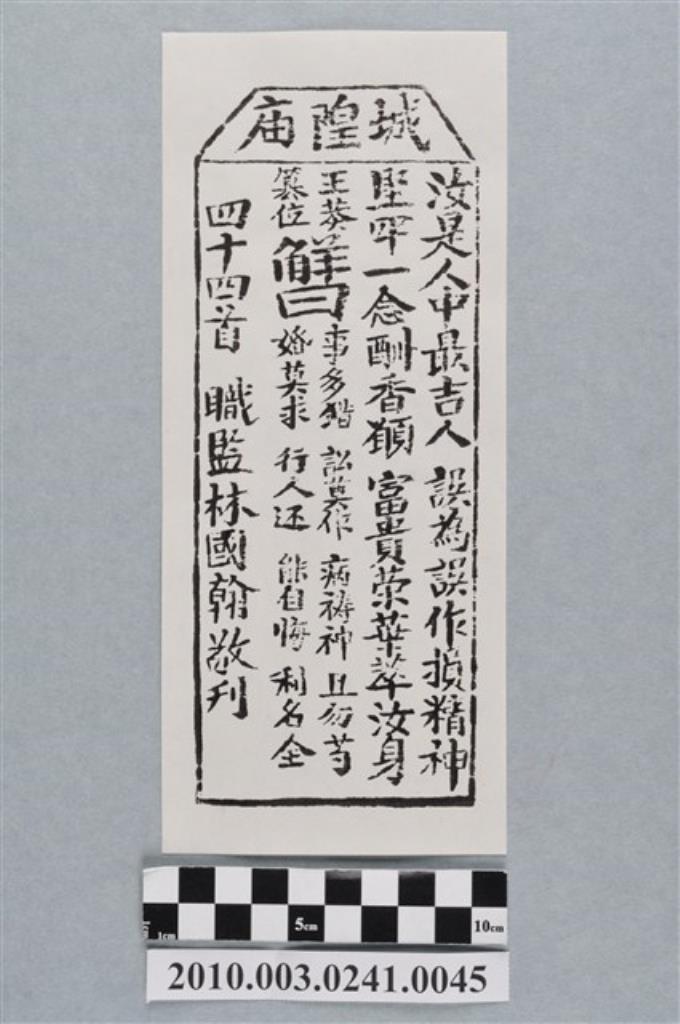 城隍庙
汝是人中最吉人 誤為誤作損精神
堅牢一念酬香願 富貴荣華萃汝身
王莽篡位 解曰 事多錯 訟莫作 病禱神 且勿苟
婚莫求 行人还 能自悔 利名全
四十四首 職監林國翰敬刊
1cm 5cm 10cm
2010.003.0241.0045